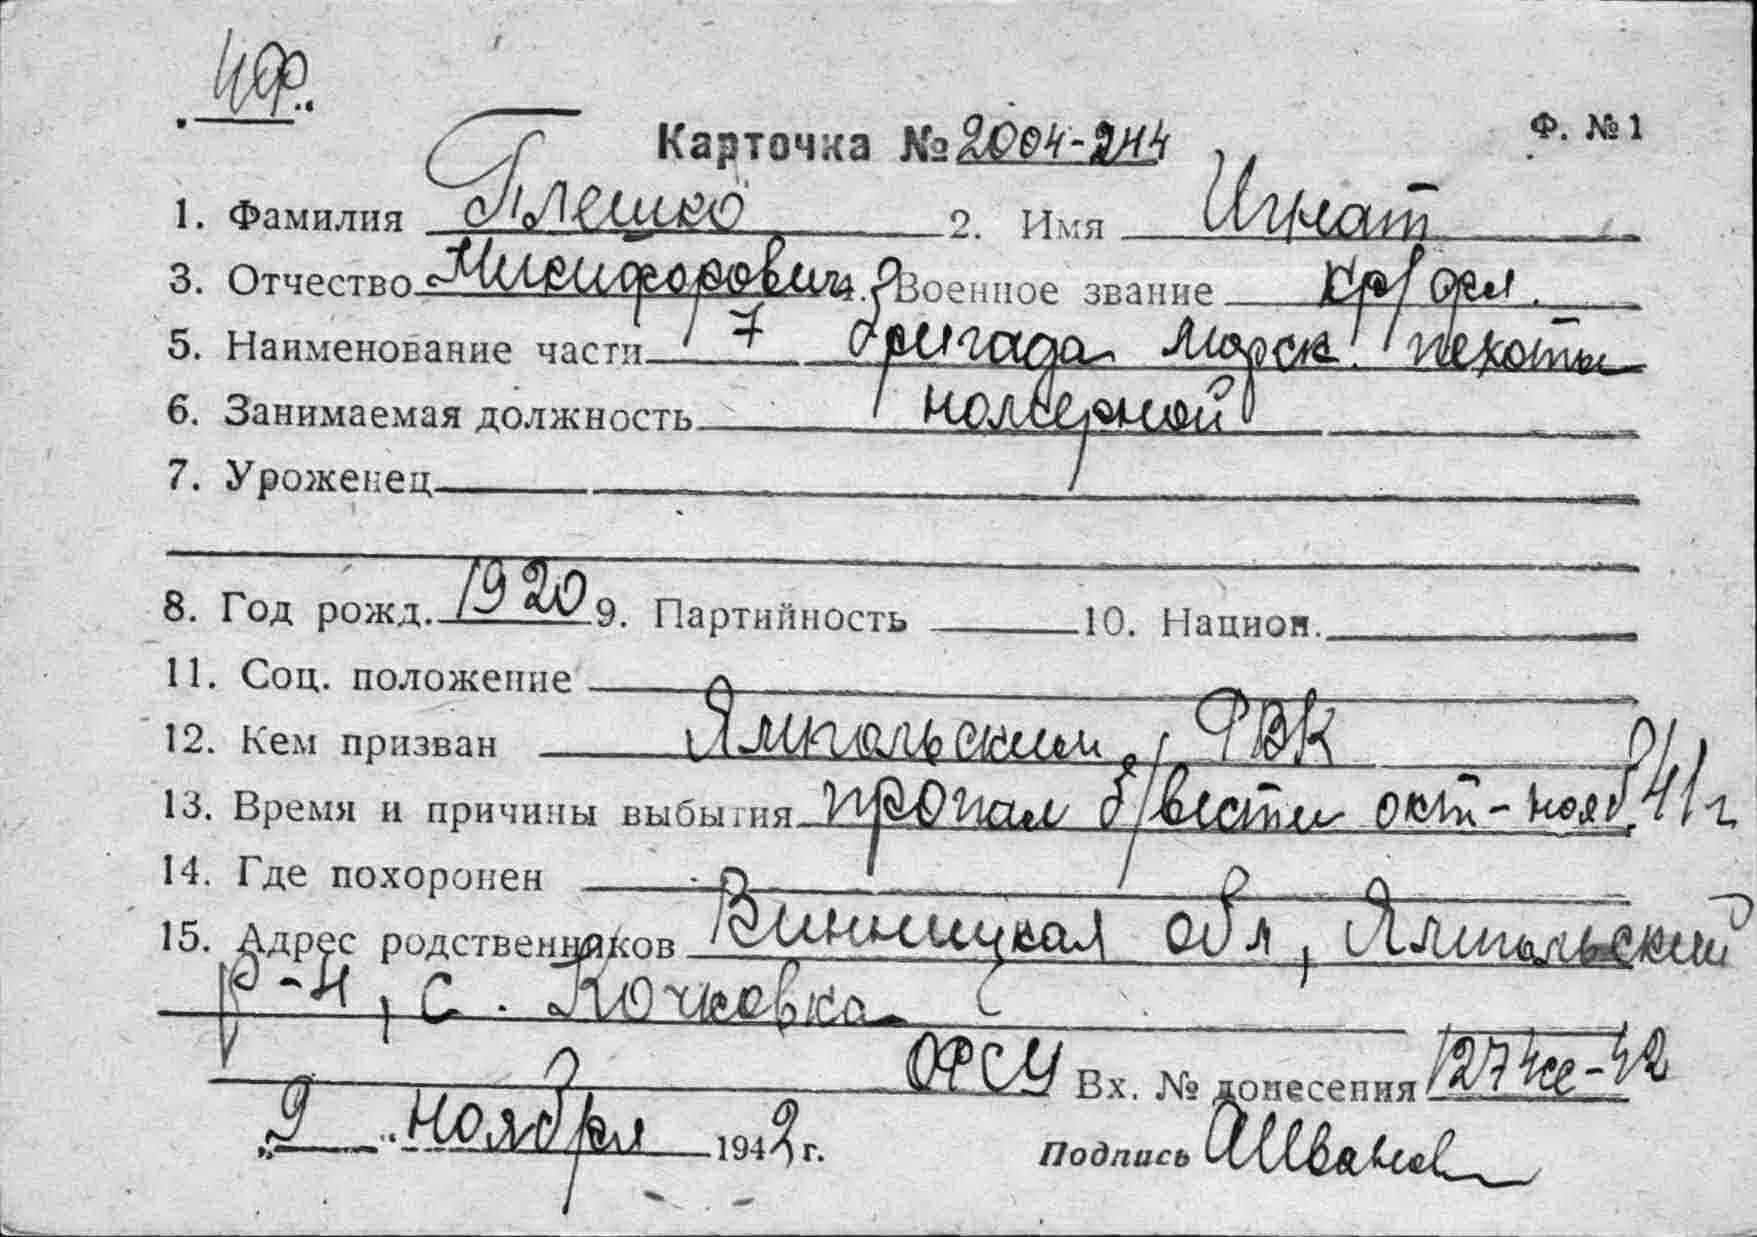 ЧФ.
Карточка № 2004-244
Ф. № 1
1. Фамилия Плешко 2. Имя Игнат
3. Отчество Никифорович 4. Военное звание кр/фл.
5. Наименование части 7 бригада морск. пехоты
6. Занимаемая должность номерной
7. Уроженец
8. Год рожд. 1920 9. Партийность 10. Национ.
11. Соц. положение
12. Кем призван Ямпольским РВК
13. Время и причины выбытия пропал б/вести окт-нояб. 41 г
14. Где похоронен
15. Адрес родственников Винницкая обл, Ямпольский
р-н, с. Качковка
ОРСУ Вх. № донесения 1274сс-42
„9" ноября 1942 г. Подпись